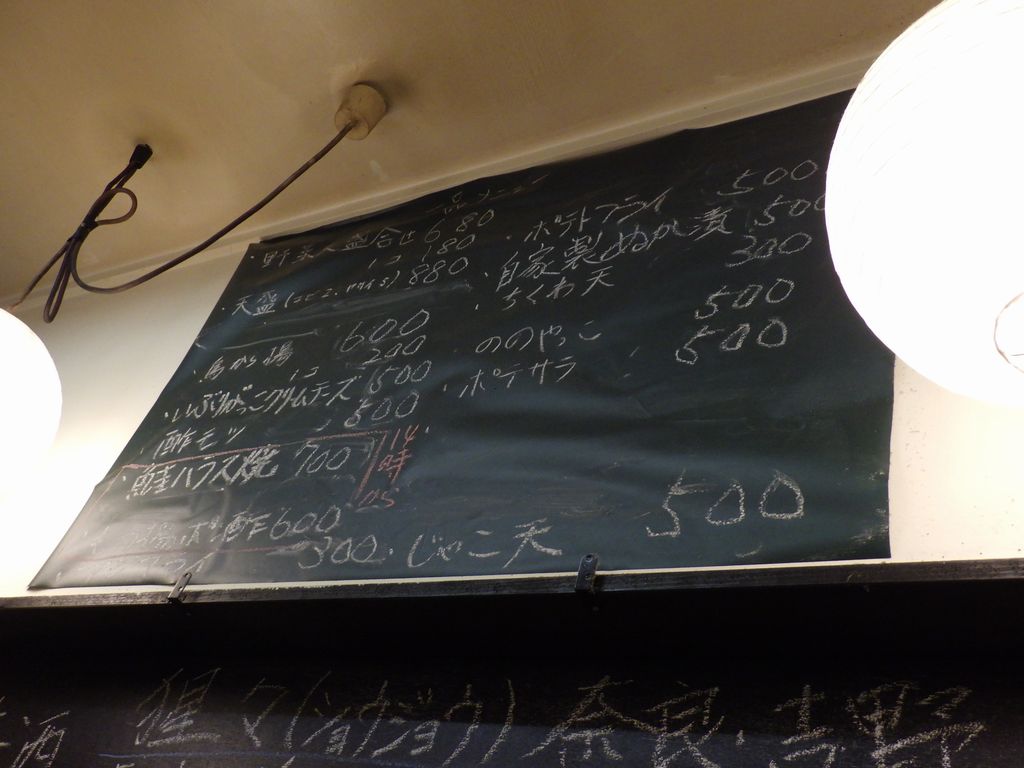 一品メニュー
・野菜天盛合せ 680
1コ 180
・天盛 880
・鳥から揚 600
1コ 200
・いぶりがっこクリームチーズ 500
・酢モツ 500
・鮭ハラス焼 700
14時から
ポン酢 600
300
・ポテトフライ 500
・自家製ぬか漬 500
・ちくわ天 300
ののやっこ 500
・ポテサラ 500
・じゃこ天 500
酒
猩々(ショウジョウ)奈良・吉野